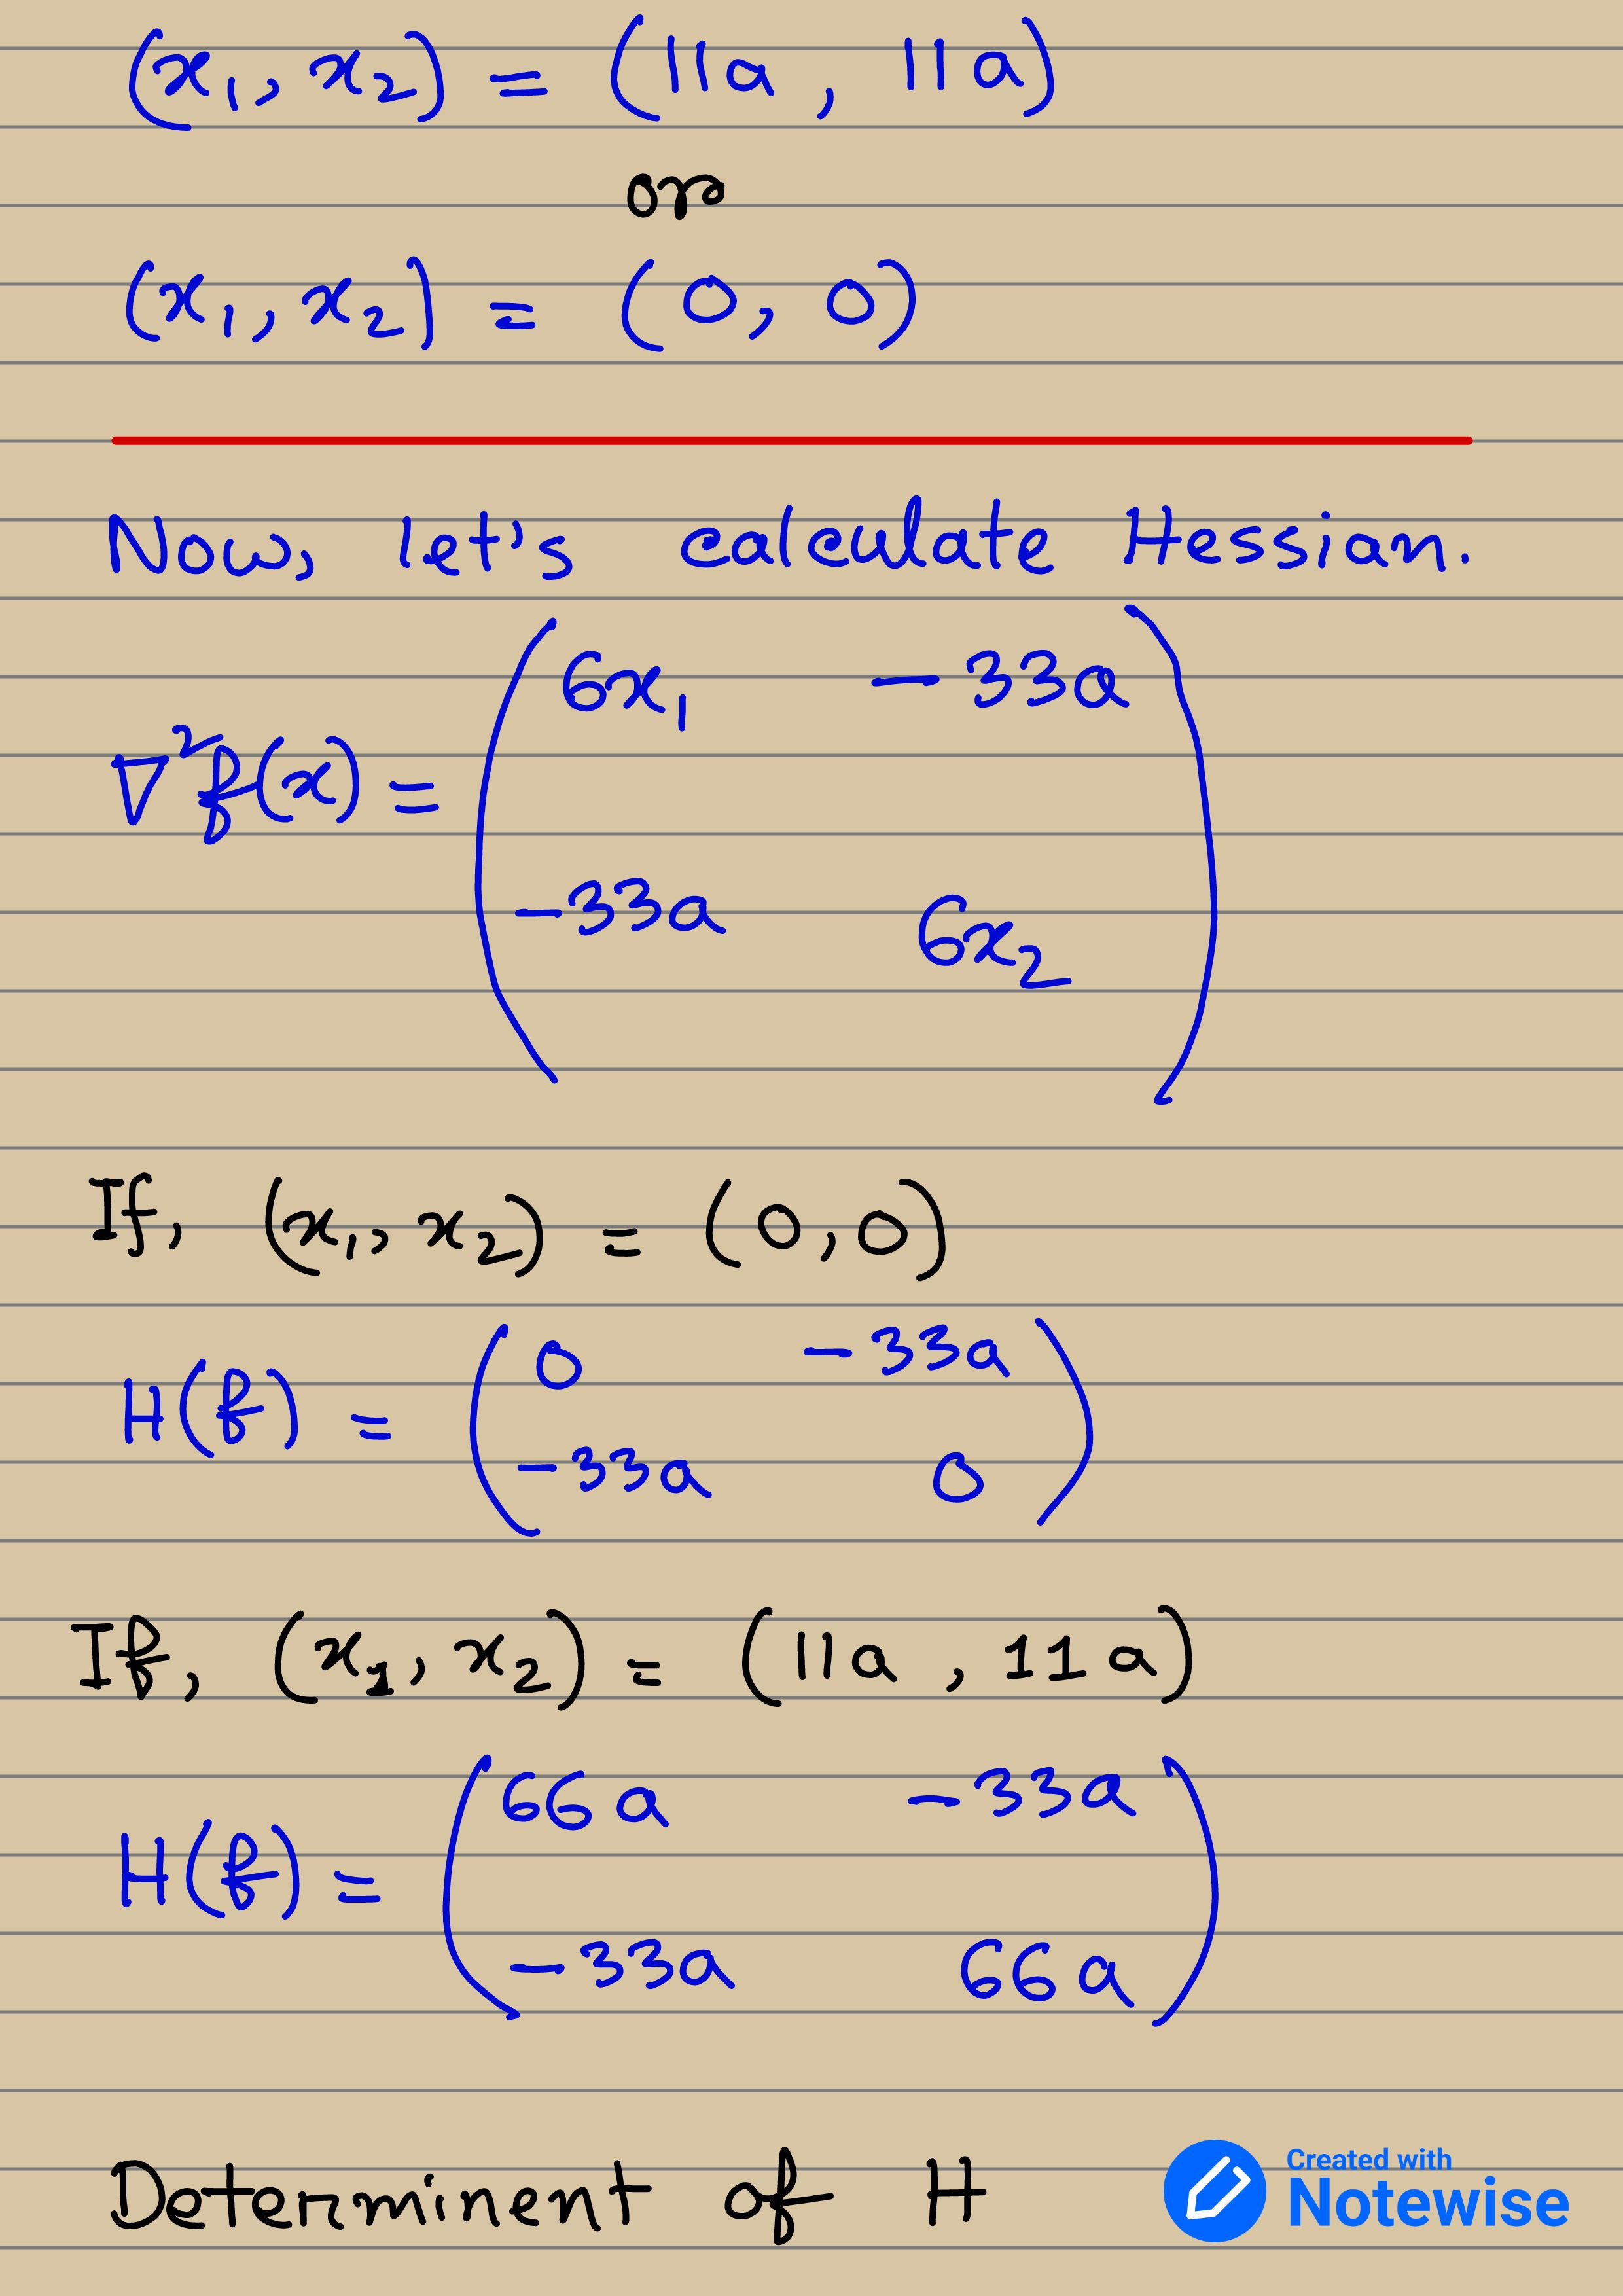 (x₁, x₂) = (11a, 11a)
or
(x₁, x₂) = (0, 0)
Now, let's calculate Hessian.
∇²f(x) = ( 6x₁  -33a
-33a  6x₂ )
If, (x₁, x₂) = (0,0)
H(f) = ( 0  -33a
-33a  0 )
If, (x₁, x₂) = (11a, 11a)
H(f) = ( 66a  -33a
-33a  66a )
Determinent of H
Created with
Notewise